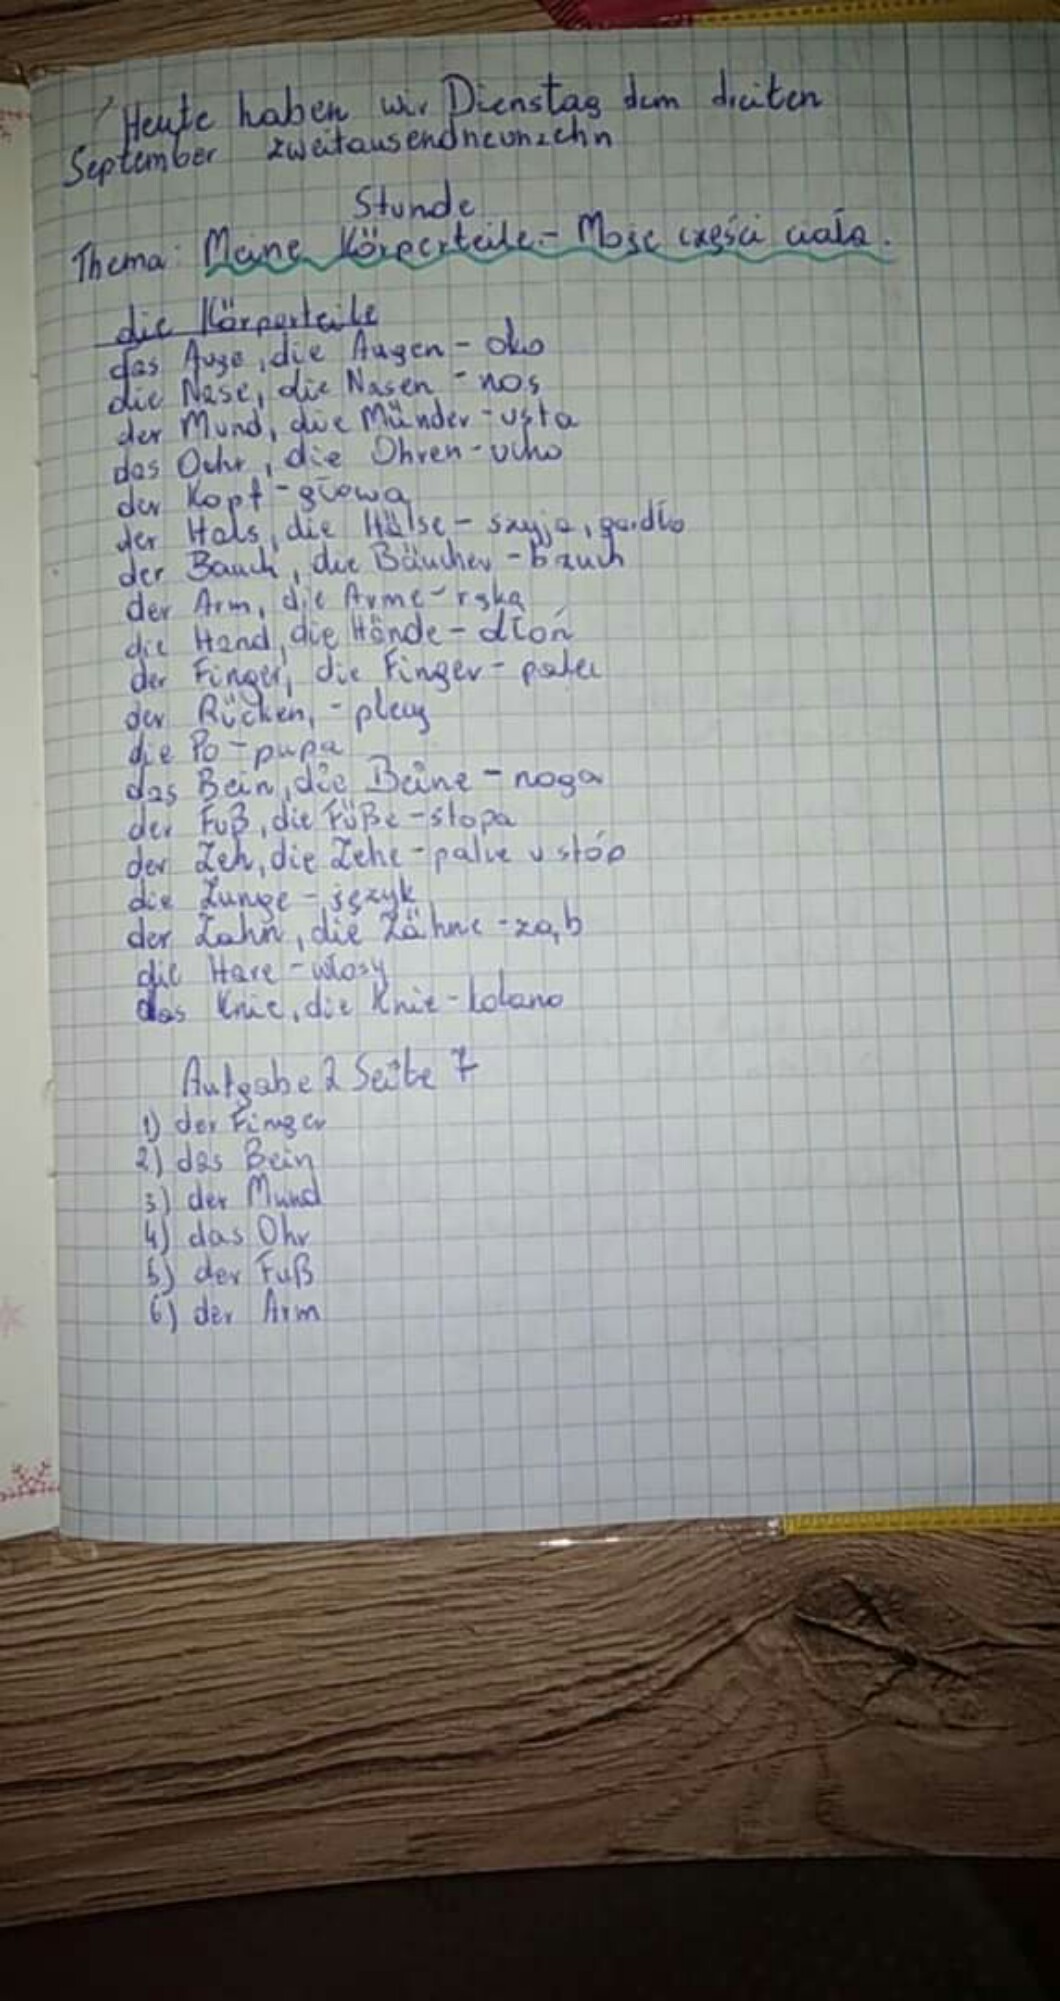 Heute haben wir Dienstag dem dreiten
September zweitausendneunzehn
Stunde
Thema: Meine Körperteile - Moje części ciała.
die Körperteile
das Auge, die Augen - oko
die Nase, die Nasen - nos
der Mund, die Münder - usta
das Oehr, die Ohren - ucho
der Kopf - głowa
der Hals, die Hälse - szyja, gardło
der Bauch, die Bäucher - brzuch
der Arm, die Arme - ręka
die Hand, die Hände - dłoń
der Finger, die Finger - palec
der Rücken, - plecy
die Po - pupa
das Bein, die Beine - noga
der Fuß, die Füße - stopa
der Zeh, die Zehe - palce u stóp
die Zunge - język
der Zahn, die Zähne - ząb
die Hare - włosy
das Knie, die Knie - kolano
Aufgabe 2 Seite 7
1) der Finger
2) das Bein
3) der Mund
4) das Ohr
5) der Fuß
6) der Arm